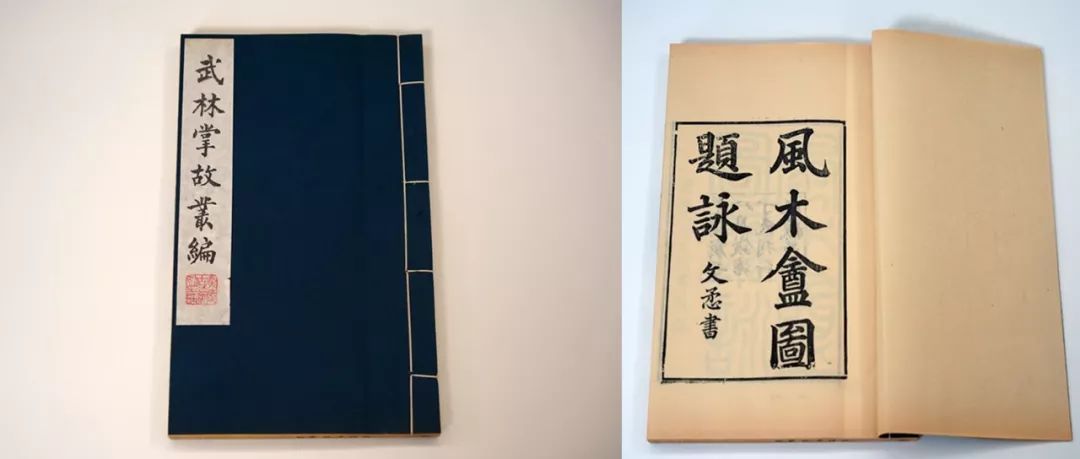 武林掌故叢編
風木盦圖
題詠
文㷼書